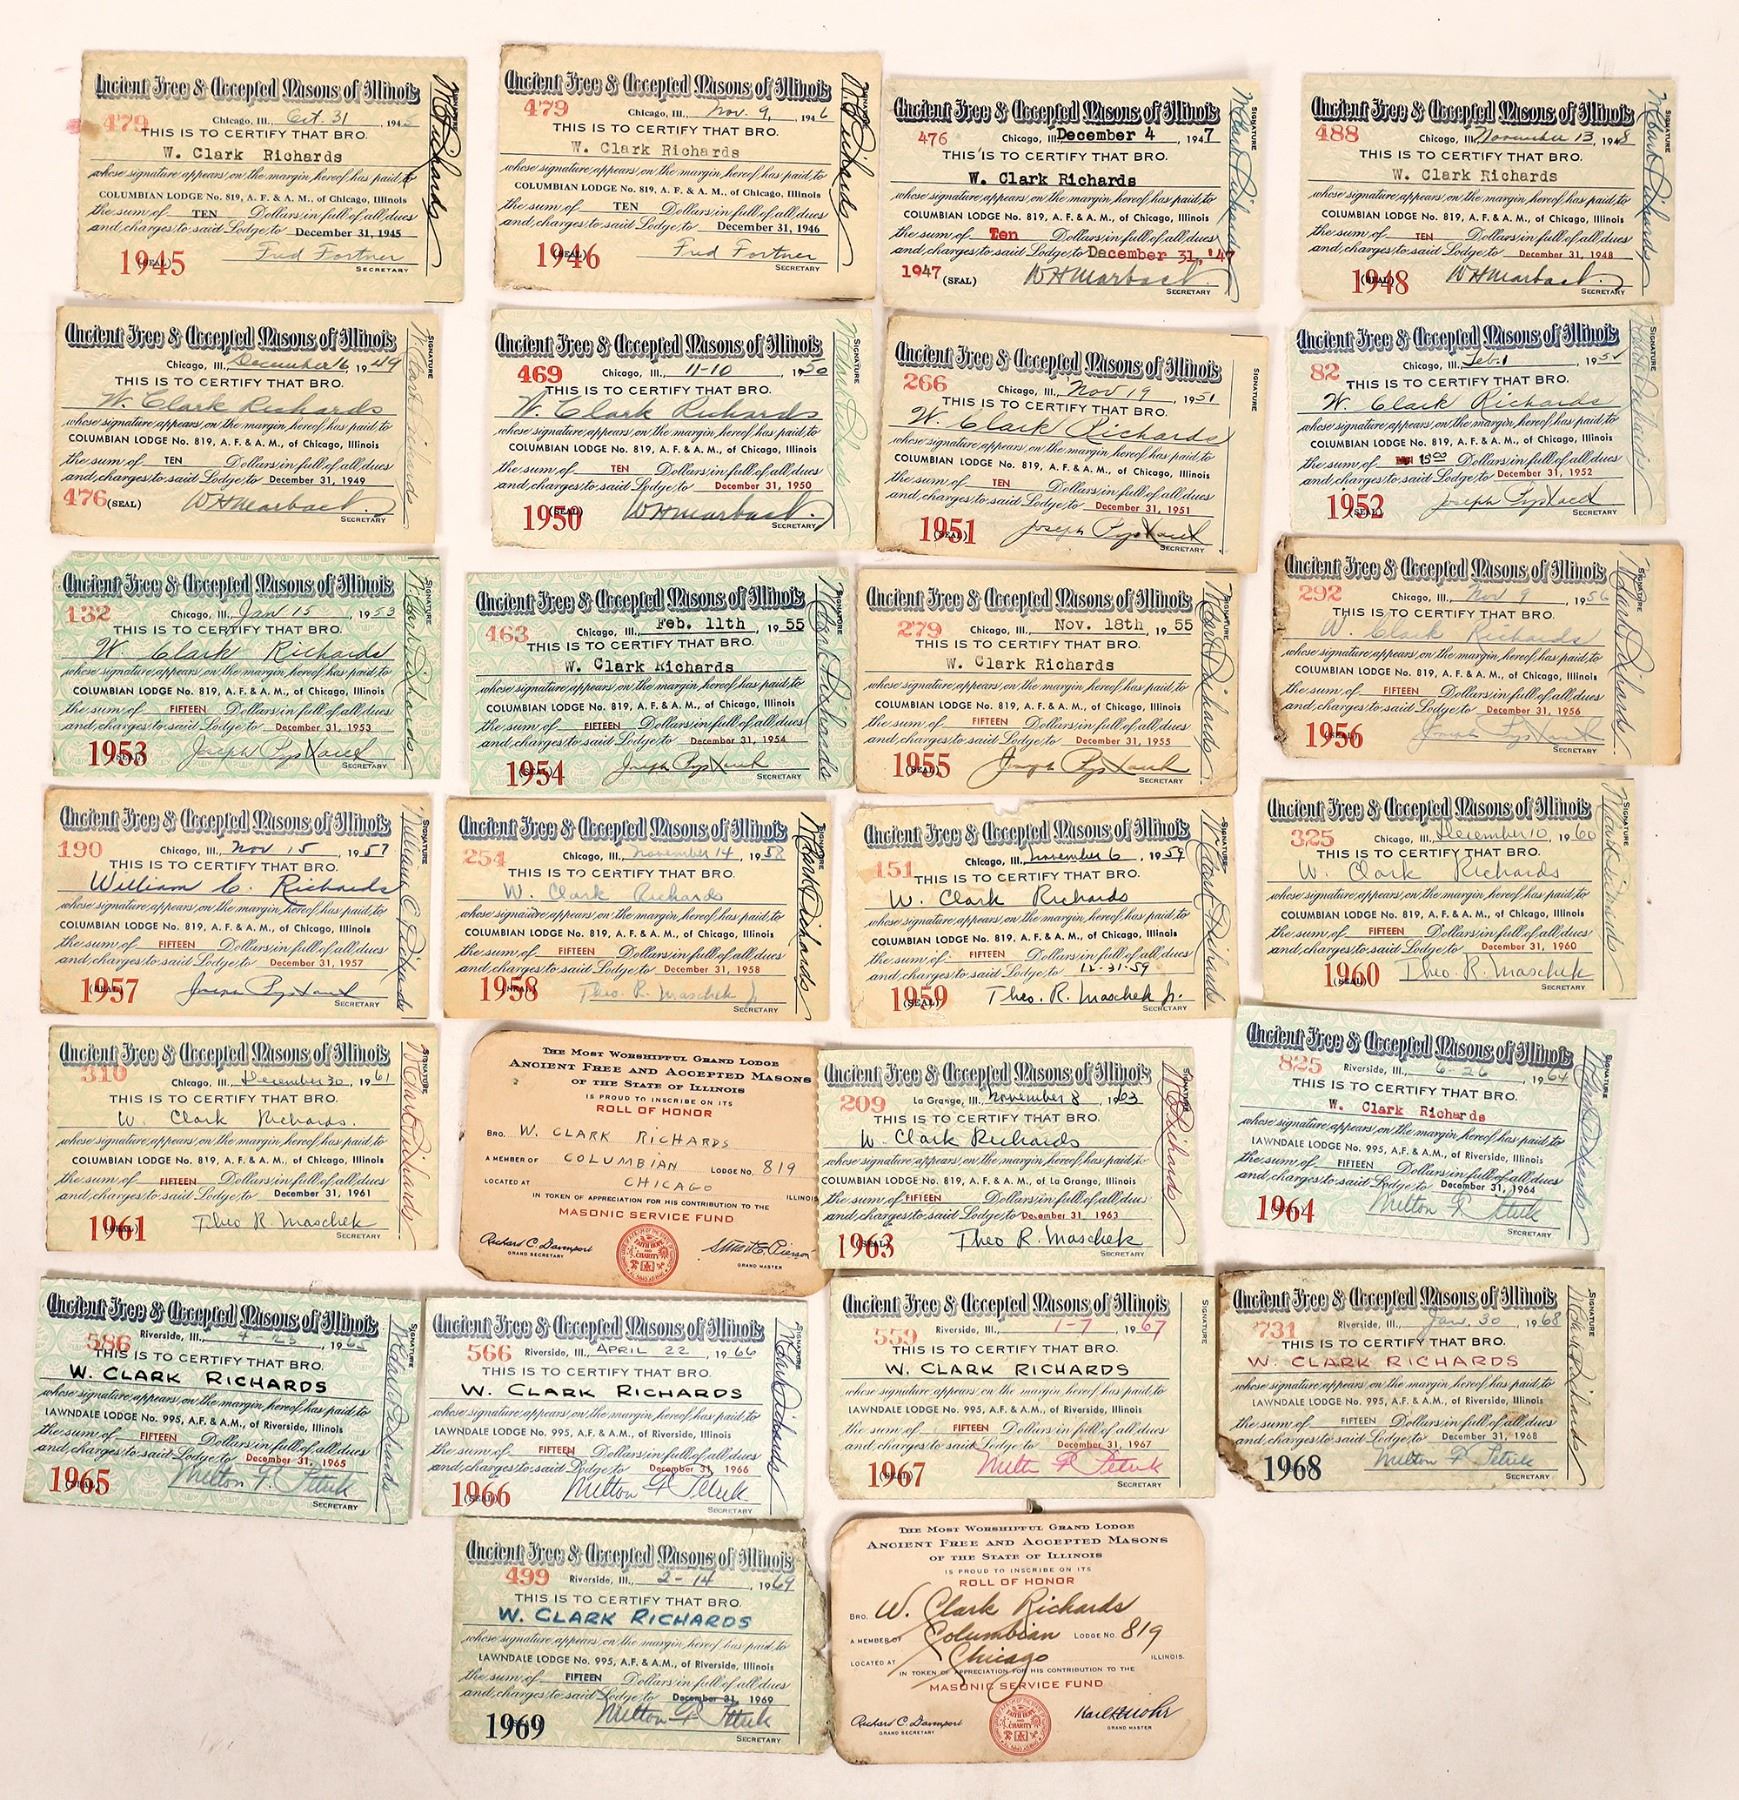 Ancient Free & Accepted Masons of Illinois
479 Chicago, Ill., Oct. 31, 194
THIS IS TO CERTIFY THAT BRO.
W. Clark Richards
whose signature appears on the margin hereof has paid to
COLUMBIAN LODGE No. 819, A. F. & A. M., of Chicago, Illinois
the sum of TEN Dollars in full of all dues
and charges to said Lodge to December 31, 1945
1945 (SEAL) Fred Fortner
SECRETARY
SIGNATURE
W Clark Richards
Ancient Free & Accepted Masons of Illinois
479 Chicago, Ill., Nov. 9, 1946
THIS IS TO CERTIFY THAT BRO.
W. Clark Richards
whose signature appears on the margin hereof has paid to
COLUMBIAN LODGE No. 819, A. F. & A. M., of Chicago, Illinois
the sum of TEN Dollars in full of all dues
and charges to said Lodge to December 31, 1946
1946 (SEAL) Fred Fortner
SECRETARY
SIGNATURE
W Clark Richards
Ancient Free & Accepted Masons of Illinois
476 Chicago, Ill., December 4 1947
THIS IS TO CERTIFY THAT BRO.
W. Clark Richards
whose signature appears on the margin hereof has paid to
COLUMBIAN LODGE No. 819, A. F. & A. M., of Chicago, Illinois
the sum of Ten Dollars in full of all dues
and charges to said Lodge to December 31, '47
1947 (SEAL) W H Marbach
SECRETARY
SIGNATURE
W Clark Richards
Ancient Free & Accepted Masons of Illinois
488 Chicago, Ill., November 13, 1948
THIS IS TO CERTIFY THAT BRO.
W. Clark Richards
whose signature appears on the margin hereof has paid to
COLUMBIAN LODGE No. 819, A. F. & A. M., of Chicago, Illinois
the sum of TEN Dollars in full of all dues
and charges to said Lodge to December 31, 1948
1948 (SEAL) W H Marbach
SECRETARY
SIGNATURE
W Clark Richards
Ancient Free & Accepted Masons of Illinois
Chicago, Ill., December 16 1949
THIS IS TO CERTIFY THAT BRO.
W. Clark Richards
whose signature appears on the margin hereof has paid to
COLUMBIAN LODGE No. 819, A. F. & A. M., of Chicago, Illinois
the sum of TEN Dollars in full of all dues
and charges to said Lodge to December 31, 1949
476 (SEAL) W H Marbach
SECRETARY
SIGNATURE
W Clark Richards
Ancient Free & Accepted Masons of Illinois
469 Chicago, Ill., 11-10 1950
THIS IS TO CERTIFY THAT BRO.
W. Clark Richards
whose signature appears on the margin hereof has paid to
COLUMBIAN LODGE No. 819, A. F. & A. M., of Chicago, Illinois
the sum of TEN Dollars in full of all dues
and charges to said Lodge to December 31, 1950
1950 (SEAL) W H Marbach
SECRETARY
SIGNATURE
W Clark Richards
Ancient Free & Accepted Masons of Illinois
266 Chicago, Ill., Nov 19 1951
THIS IS TO CERTIFY THAT BRO.
W. Clark Richards
whose signature appears on the margin hereof has paid to
COLUMBIAN LODGE No. 819, A. F. & A. M., of Chicago, Illinois
the sum of TEN Dollars in full of all dues
and charges to said Lodge to December 31, 1951
1951 (SEAL) Joseph
SECRETARY
SIGNATURE
Ancient Free & Accepted Masons of Illinois
82 Chicago, Ill., Feb. 1 195
THIS IS TO CERTIFY THAT BRO.
W. Clark Richards
whose signature appears on the margin hereof has paid to
COLUMBIAN LODGE No. 819, A. F. & A. M., of Chicago, Illinois
the sum of 15 00 Dollars in full of all dues
and charges to said Lodge to December 31, 1952
1952 (SEAL) Joseph
SECRETARY
SIGNATURE
W Clark Richards
Ancient Free & Accepted Masons of Illinois
132 Chicago, Ill., Jan 15 1953
THIS IS TO CERTIFY THAT BRO.
W Clark Richards
whose signature appears on the margin hereof has paid to
COLUMBIAN LODGE No. 819, A. F. & A. M., of Chicago, Illinois
the sum of FIFTEEN Dollars in full of all dues
and charges to said Lodge to December 31, 1953
1953 (SEAL) Joseph
SECRETARY
SIGNATURE
W Clark Richards
Ancient Free & Accepted Masons of Illinois
463 Chicago, Ill., Feb. 11th, 1955
THIS IS TO CERTIFY THAT BRO.
W. Clark Richards
whose signature appears on the margin hereof has paid to
COLUMBIAN LODGE No. 819, A. F. & A. M., of Chicago, Illinois
the sum of FIFTEEN Dollars in full of all dues
and charges to said Lodge to December 31, 1954
1954 (SEAL) Joseph
SECRETARY
SIGNATURE
W Clark Richards
Ancient Free & Accepted Masons of Illinois
279 Chicago, Ill., Nov. 18th 1955
THIS IS TO CERTIFY THAT BRO.
W. Clark Richards
whose signature appears on the margin hereof has paid to
COLUMBIAN LODGE No. 819, A. F. & A. M., of Chicago, Illinois
the sum of FIFTEEN Dollars in full of all dues
and charges to said Lodge to December 31, 1955
1955 (SEAL) Joseph
SECRETARY
SIGNATURE
W Clark Richards
Ancient Free & Accepted Masons of Illinois
292 Chicago, Ill., Nov 9 1956
THIS IS TO CERTIFY THAT BRO.
W. Clark Richards
whose signature appears on the margin hereof has paid to
COLUMBIAN LODGE No. 819, A. F. & A. M., of Chicago, Illinois
the sum of FIFTEEN Dollars in full of all dues
and charges to said Lodge to December 31, 1956
1956 (SEAL) Joseph
SECRETARY
SIGNATURE
W Clark Richards
Ancient Free & Accepted Masons of Illinois
190 Chicago, Ill., Nov 15, 1957
THIS IS TO CERTIFY THAT BRO.
William C. Richards
whose signature appears on the margin hereof has paid to
COLUMBIAN LODGE No. 819, A. F. & A. M., of Chicago, Illinois
the sum of FIFTEEN Dollars in full of all dues
and charges to said Lodge to December 31, 1957
1957 (SEAL) Joseph
SECRETARY
SIGNATURE
William C Richards
Ancient Free & Accepted Masons of Illinois
254 Chicago, Ill., November 14, 1958
THIS IS TO CERTIFY THAT BRO.
W. Clark Richards
whose signature appears on the margin hereof has paid to
COLUMBIAN LODGE No. 819, A. F. & A. M., of Chicago, Illinois
the sum of FIFTEEN Dollars in full of all dues
and charges to said Lodge to December 31, 1958
1958 (SEAL) Theo. R. Maschek Jr.
SECRETARY
SIGNATURE
W Clark Richards
Ancient Free & Accepted Masons of Illinois
151 Chicago, Ill., November 6, 1959
THIS IS TO CERTIFY THAT BRO.
W. Clark Richards
whose signature appears on the margin hereof has paid to
COLUMBIAN LODGE No. 819, A. F. & A. M., of Chicago, Illinois
the sum of FIFTEEN Dollars in full of all dues
and charges to said Lodge to 12-31-59
1959 (SEAL) Theo. R. Maschek Jr.
SECRETARY
SIGNATURE
W Clark Richards
Ancient Free & Accepted Masons of Illinois
325 Chicago, Ill., December 10, 1960
THIS IS TO CERTIFY THAT BRO.
W. Clark Richards
whose signature appears on the margin hereof has paid to
COLUMBIAN LODGE No. 819, A. F. & A. M., of Chicago, Illinois
the sum of FIFTEEN Dollars in full of all dues
and charges to said Lodge to December 31, 1960
1960 (SEAL) Theo R. Maschek
SECRETARY
SIGNATURE
W Clark Richards
Ancient Free & Accepted Masons of Illinois
310 Chicago, Ill., December 30, 1961
THIS IS TO CERTIFY THAT BRO.
W. Clark Richards.
whose signature appears on the margin hereof has paid to
COLUMBIAN LODGE No. 819, A. F. & A. M., of Chicago, Illinois
the sum of FIFTEEN Dollars in full of all dues
and charges to said Lodge to December 31, 1961
1961 (SEAL) Theo R. Maschek
SECRETARY
SIGNATURE
W Clark Richards
THE MOST WORSHIPFUL GRAND LODGE
ANCIENT FREE AND ACCEPTED MASONS
OF THE STATE OF ILLINOIS
IS PROUD TO INSCRIBE ON ITS
ROLL OF HONOR
BRO. W. CLARK RICHARDS
A MEMBER OF COLUMBIAN LODGE NO. 819
LOCATED AT CHICAGO ILLINOIS
IN TOKEN OF APPRECIATION FOR HIS CONTRIBUTION TO THE
MASONIC SERVICE FUND
Richard C. Davenport Stuart E. Pierson
GRAND SECRETARY GRAND MASTER
FAITH HOPE AND CHARITY
Ancient Free & Accepted Masons of Illinois
209 La Grange, Ill., November 8 1963
THIS IS TO CERTIFY THAT BRO.
W. Clark Richards
whose signature appears on the margin hereof has paid to
COLUMBIAN LODGE No. 819, A. F. & A. M., of La Grange, Illinois
the sum of FIFTEEN Dollars in full of all dues
and charges to said Lodge to December 31, 1963
1963 (SEAL) Theo R. Maschek
SECRETARY
SIGNATURE
W Clark Richards
Ancient Free & Accepted Masons of Illinois
825 Riverside, Ill., 6-26, 1964
THIS IS TO CERTIFY THAT BRO.
W. Clark Richards
whose signature appears on the margin hereof has paid to
LAWNDALE LODGE No. 995, A.F. & A.M., of Riverside, Illinois
the sum of FIFTEEN Dollars in full of all dues
and charges to said Lodge to December 31, 1964
1964 (SEAL) Milton F. Petrik
SECRETARY
SIGNATURE
W Clark Richards
Ancient Free & Accepted Masons of Illinois
586 Riverside, Ill., 4-23, 1965
THIS IS TO CERTIFY THAT BRO.
W. CLARK RICHARDS
whose signature appears on the margin hereof has paid to
LAWNDALE LODGE No. 995, A.F. & A.M., of Riverside, Illinois
the sum of FIFTEEN Dollars in full of all dues
and charges to said Lodge to December 31, 1965
1965 (SEAL) Milton F. Petrik
SECRETARY
SIGNATURE
W Clark Richards
Ancient Free & Accepted Masons of Illinois
566 Riverside, Ill., APRIL 22, 1966
THIS IS TO CERTIFY THAT BRO.
W. CLARK RICHARDS
whose signature appears on the margin hereof has paid to
LAWNDALE LODGE No. 995, A.F. & A.M., of Riverside, Illinois
the sum of FIFTEEN Dollars in full of all dues
and charges to said Lodge to December 31, 1966
1966 (SEAL) Milton F. Petrik
SECRETARY
SIGNATURE
W Clark Richards
Ancient Free & Accepted Masons of Illinois
559 Riverside, Ill., 1-7 1967
THIS IS TO CERTIFY THAT BRO.
W. CLARK RICHARDS
whose signature appears on the margin hereof has paid to
LAWNDALE LODGE No. 995, A.F. & A.M., of Riverside, Illinois
the sum of FIFTEEN Dollars in full of all dues
and charges to said Lodge to December 31, 1967
1967 (SEAL) Milton F. Petrik
SECRETARY
SIGNATURE
Ancient Free & Accepted Masons of Illinois
731 Riverside, Ill., Jan. 30 1968
THIS IS TO CERTIFY THAT BRO.
W. CLARK RICHARDS
whose signature appears on the margin hereof has paid to
LAWNDALE LODGE No. 995, A.F. & A.M., of Riverside, Illinois
the sum of FIFTEEN Dollars in full of all dues
and charges to said Lodge to December 31, 1968
1968 Milton F. Petrik
SECRETARY
SIGNATURE
W Clark Richards
Ancient Free & Accepted Masons of Illinois
499 Riverside, Ill., 2-14, 1969
THIS IS TO CERTIFY THAT BRO.
W. CLARK RICHARDS
whose signature appears on the margin hereof has paid to
LAWNDALE LODGE No. 995, A.F. & A.M., of Riverside, Illinois
the sum of FIFTEEN Dollars in full of all dues
and charges to said Lodge to December 31, 1969
1969 Milton F. Petrik
SECRETARY
THE MOST WORSHIPFUL GRAND LODGE
ANCIENT FREE AND ACCEPTED MASONS
OF THE STATE OF ILLINOIS
IS PROUD TO INSCRIBE ON ITS
ROLL OF HONOR
BRO. W. Clark Richards
A MEMBER OF Columbian LODGE NO. 819
LOCATED AT Chicago ILLINOIS.
IN TOKEN OF APPRECIATION FOR HIS CONTRIBUTION TO THE
MASONIC SERVICE FUND
Richard C. Davenport Karl Mohr
GRAND SECRETARY GRAND MASTER
FAITH HOPE AND CHARITY